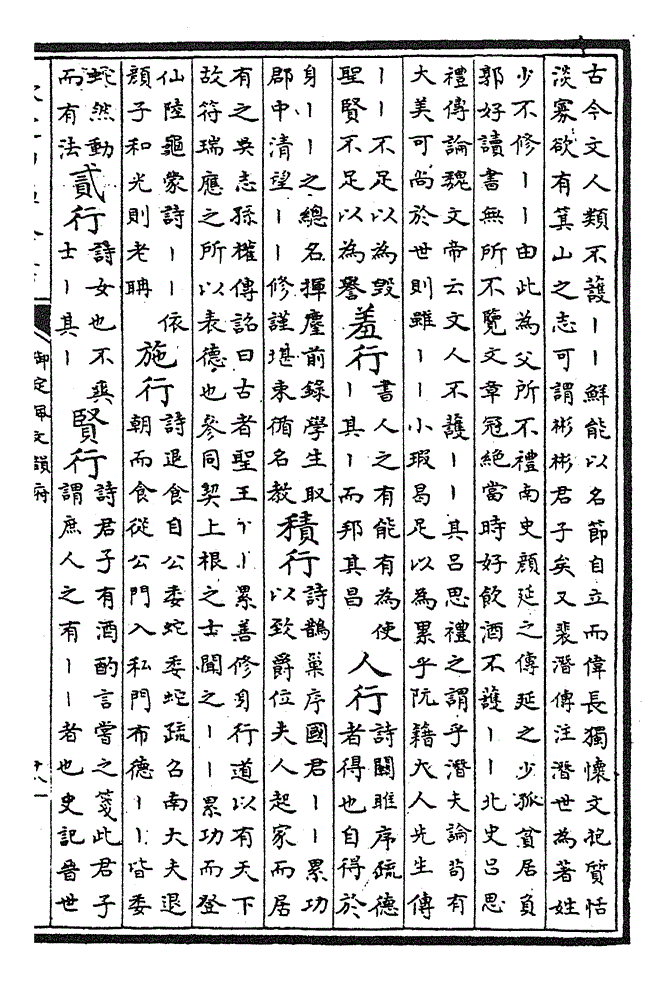 古今文人類不護丨丨鮮能以名節自立而偉長獨懷文抱質恬
淡寡欲有箕山之志可謂彬彬君子矣又裴潛傳注潛世為著姓
少不修丨丨由此為父所不禮南史顏延之傳延之少孤貧居負
郭好讀書無所不覽文章冠絕當時好飲酒不護丨丨北史呂思
禮傳論魏文帝云文人不護丨丨其呂思禮之謂乎潛夫論苟有
大美可尚於世則雖丨丨小瑕曷足以為累乎阮籍大人先生傳
丨丨不足以為毀
聖賢不足以為譽
羞行
書人之有能有為使
丨其丨而邦其昌
人行
詩關雎序疏德
者得也自得於
身丨丨之總名揮麈前錄學生取
郡中清望丨丨修謹堪束循名教
積行
詩鵲巢序國君丨丨累功
以致爵位夫人起家而居
有之吳志孫權傳詔曰古者聖王丨丨累善修身行道以有天下
故符瑞應之所以表德也參同契上根之士聞之丨丨累功而登
仙陸龜蒙詩丨丨依
顏子和光則老聃
施行
詩退食自公委蛇委蛇疏召南大夫退
朝而食從公門入私門布德丨丨皆委
蛇然動
而有法
貳行
詩女也不爽
士丨其丨
賢行
詩君子有酒酌言嘗之箋此君子
謂庶人之有丨丨者也史記晉世
御定佩文韻府